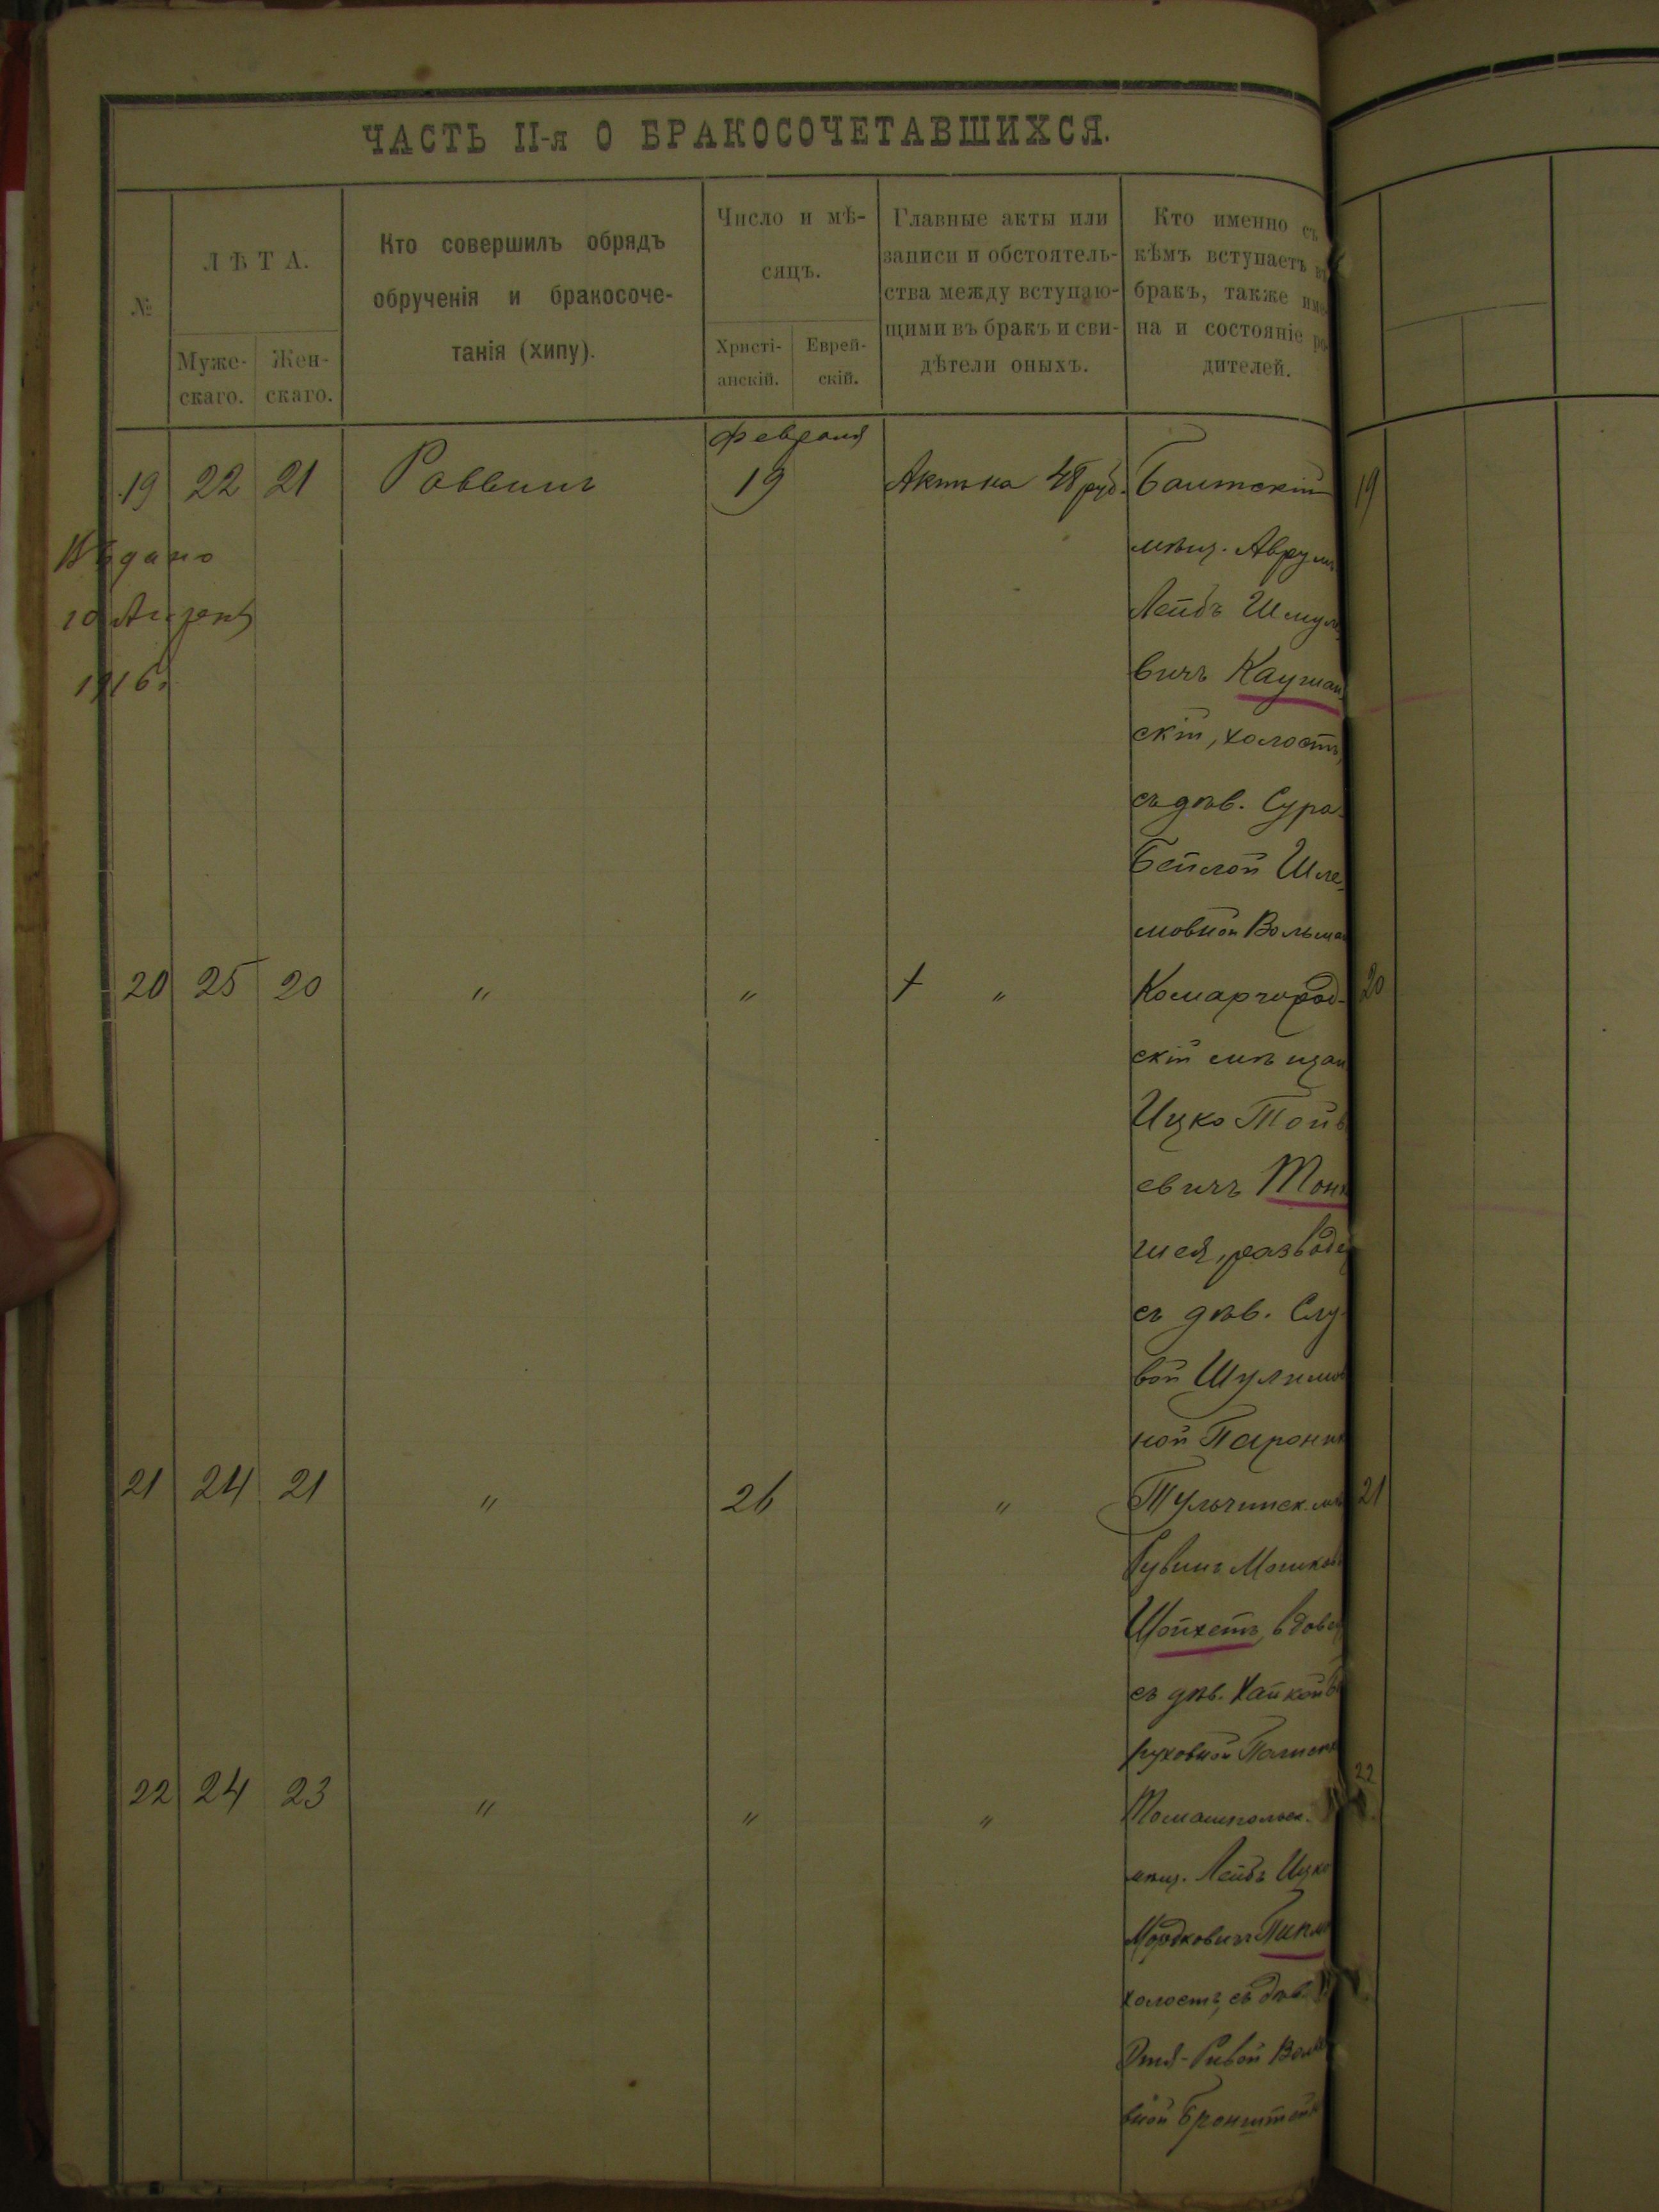 ЧАСТЬ II-я О БРАКОСОЧЕТАВШИХСЯ.
№
ЛѢТА.
Муже-
скаго.
Жен-
скаго.
Кто совершилъ обрядъ
обрученія и бракосоче-
танія (хипу).
Число и мѣ-
сяцъ.
Христі-
анскій.
Еврей-
скій.
Главные акты или
записи и обстоятель-
ства между вступаю-
щими въ бракъ и сви-
дѣтели оныхъ.
Кто именно съ
кѣмъ вступаетъ въ
бракъ, также име-
на и состояніе ро-
дителей.
февраля
19 22 21 Раввинъ 19 Актъ на 48 руб. Балтскій
мѣщ. Аврумъ
Лейбъ Шмуле
вичъ Каушан
скій, холостъ,
съ дѣв. Сура-
Бейлой Шле-
мовной Вольман
Выдано
10
1916г
20 25 20 " " " Комаргород-
скій мѣщан
Ицко Той
евичъ Тон
разводе
съ дѣв. Слу-
вой Шулимов
ной
21 24 21 " 26 " Тульчинск. мѣ
Рувинъ Мошков
Шойхетъ, вдовец
съ дѣв. Хайкой Бо
руховной
22 24 23 " " " Томашпольск.
мѣщ. Лейбъ Ицко
Мордковичъ
холостъ, съ дѣв.
Этя-Ривой
вной Бронштейн
19
20
21
22